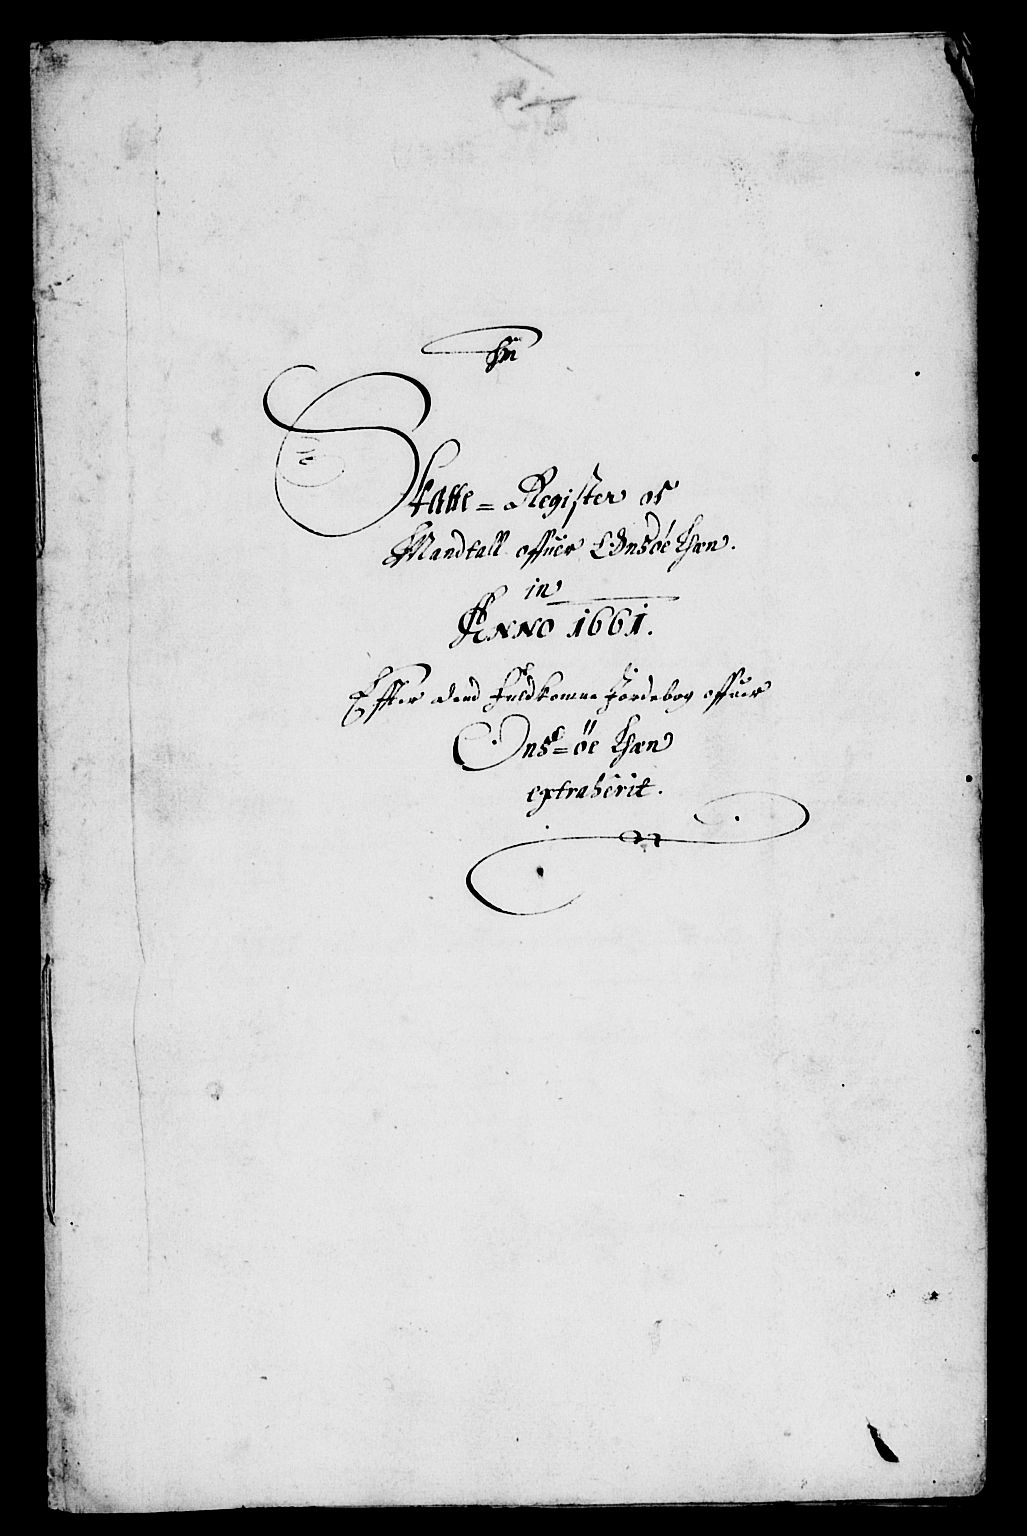 En
Skatte= Register oc
Mandtall offuer Onsøe Læn.
in
Anno 1661.
Effter dend Fuldkomne Jordebog offuer
Ons=öe Læn
extraherit.